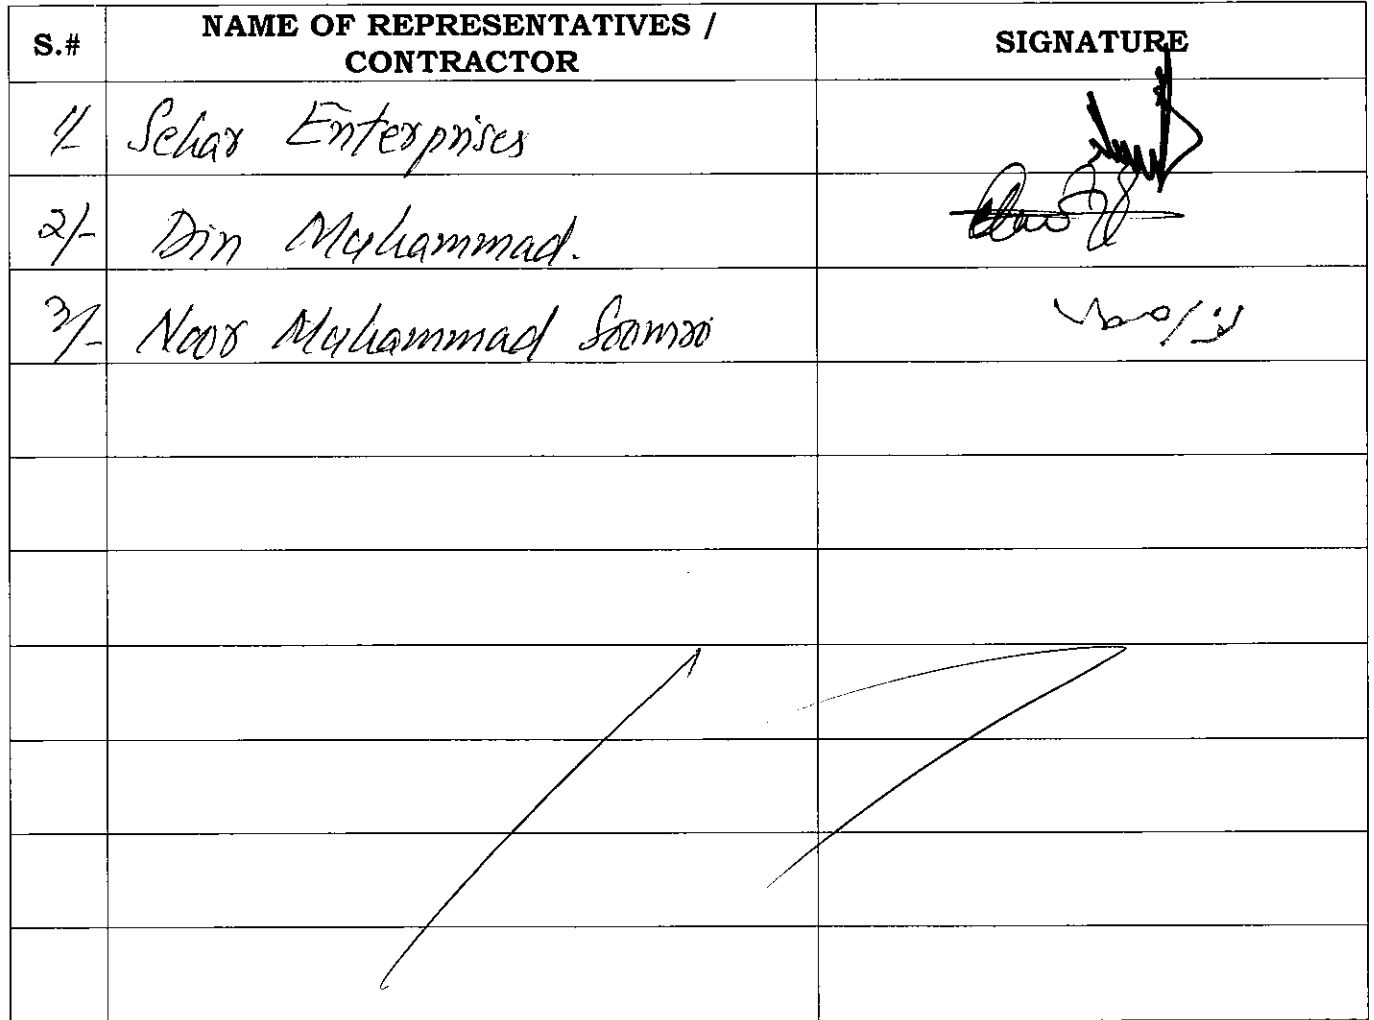 S.# NAME OF REPRESENTATIVES / CONTRACTOR SIGNATURE
1/- Sehar Enterprises
2/- Din Muhammad.
3/- Noor Muhammad Soomro